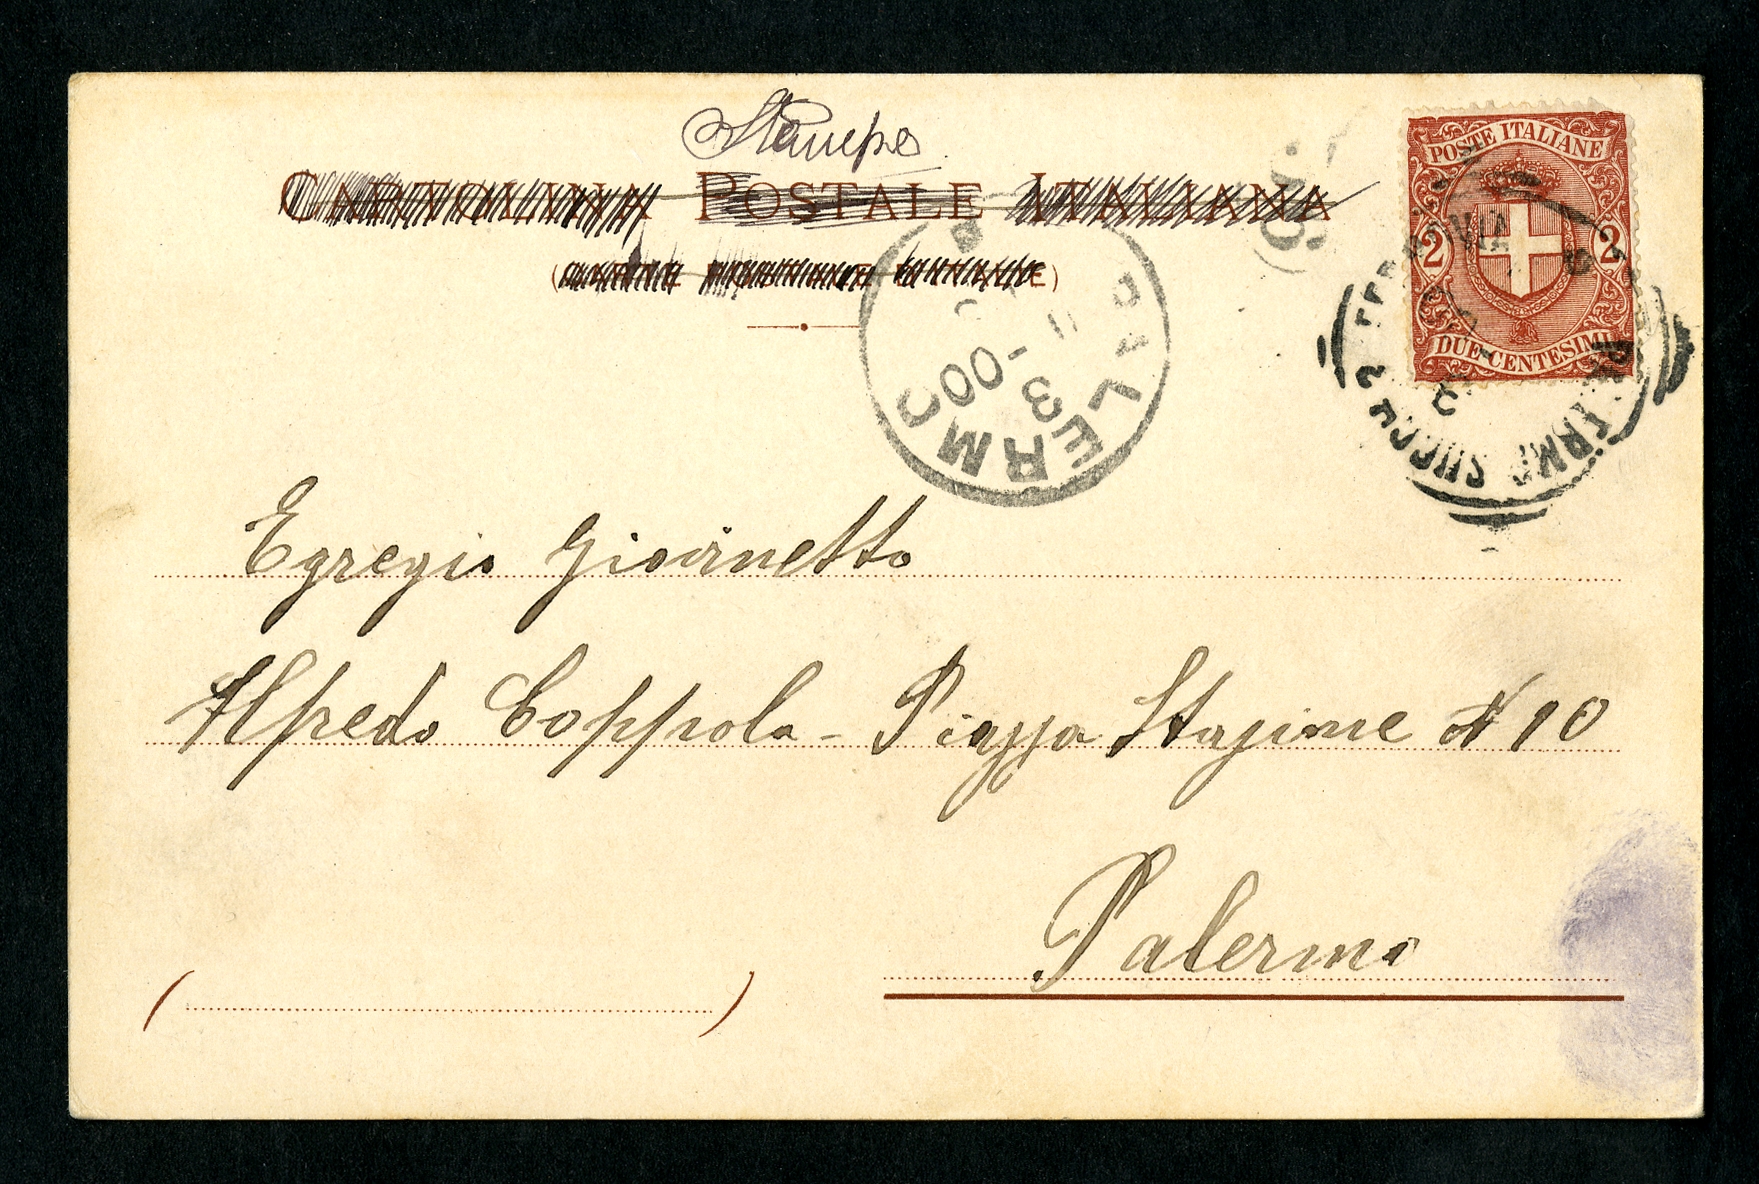 Stampe
CARTOLINA POSTALE ITALIANA
POSTE ITALIANE
2 2
DUE CENTESIMI
PALERMO
3-00
PALERMO SUCCR 2
Egregio Giovinetto
Alfredo Coppola - Piazza Stazione N 10
Palermo